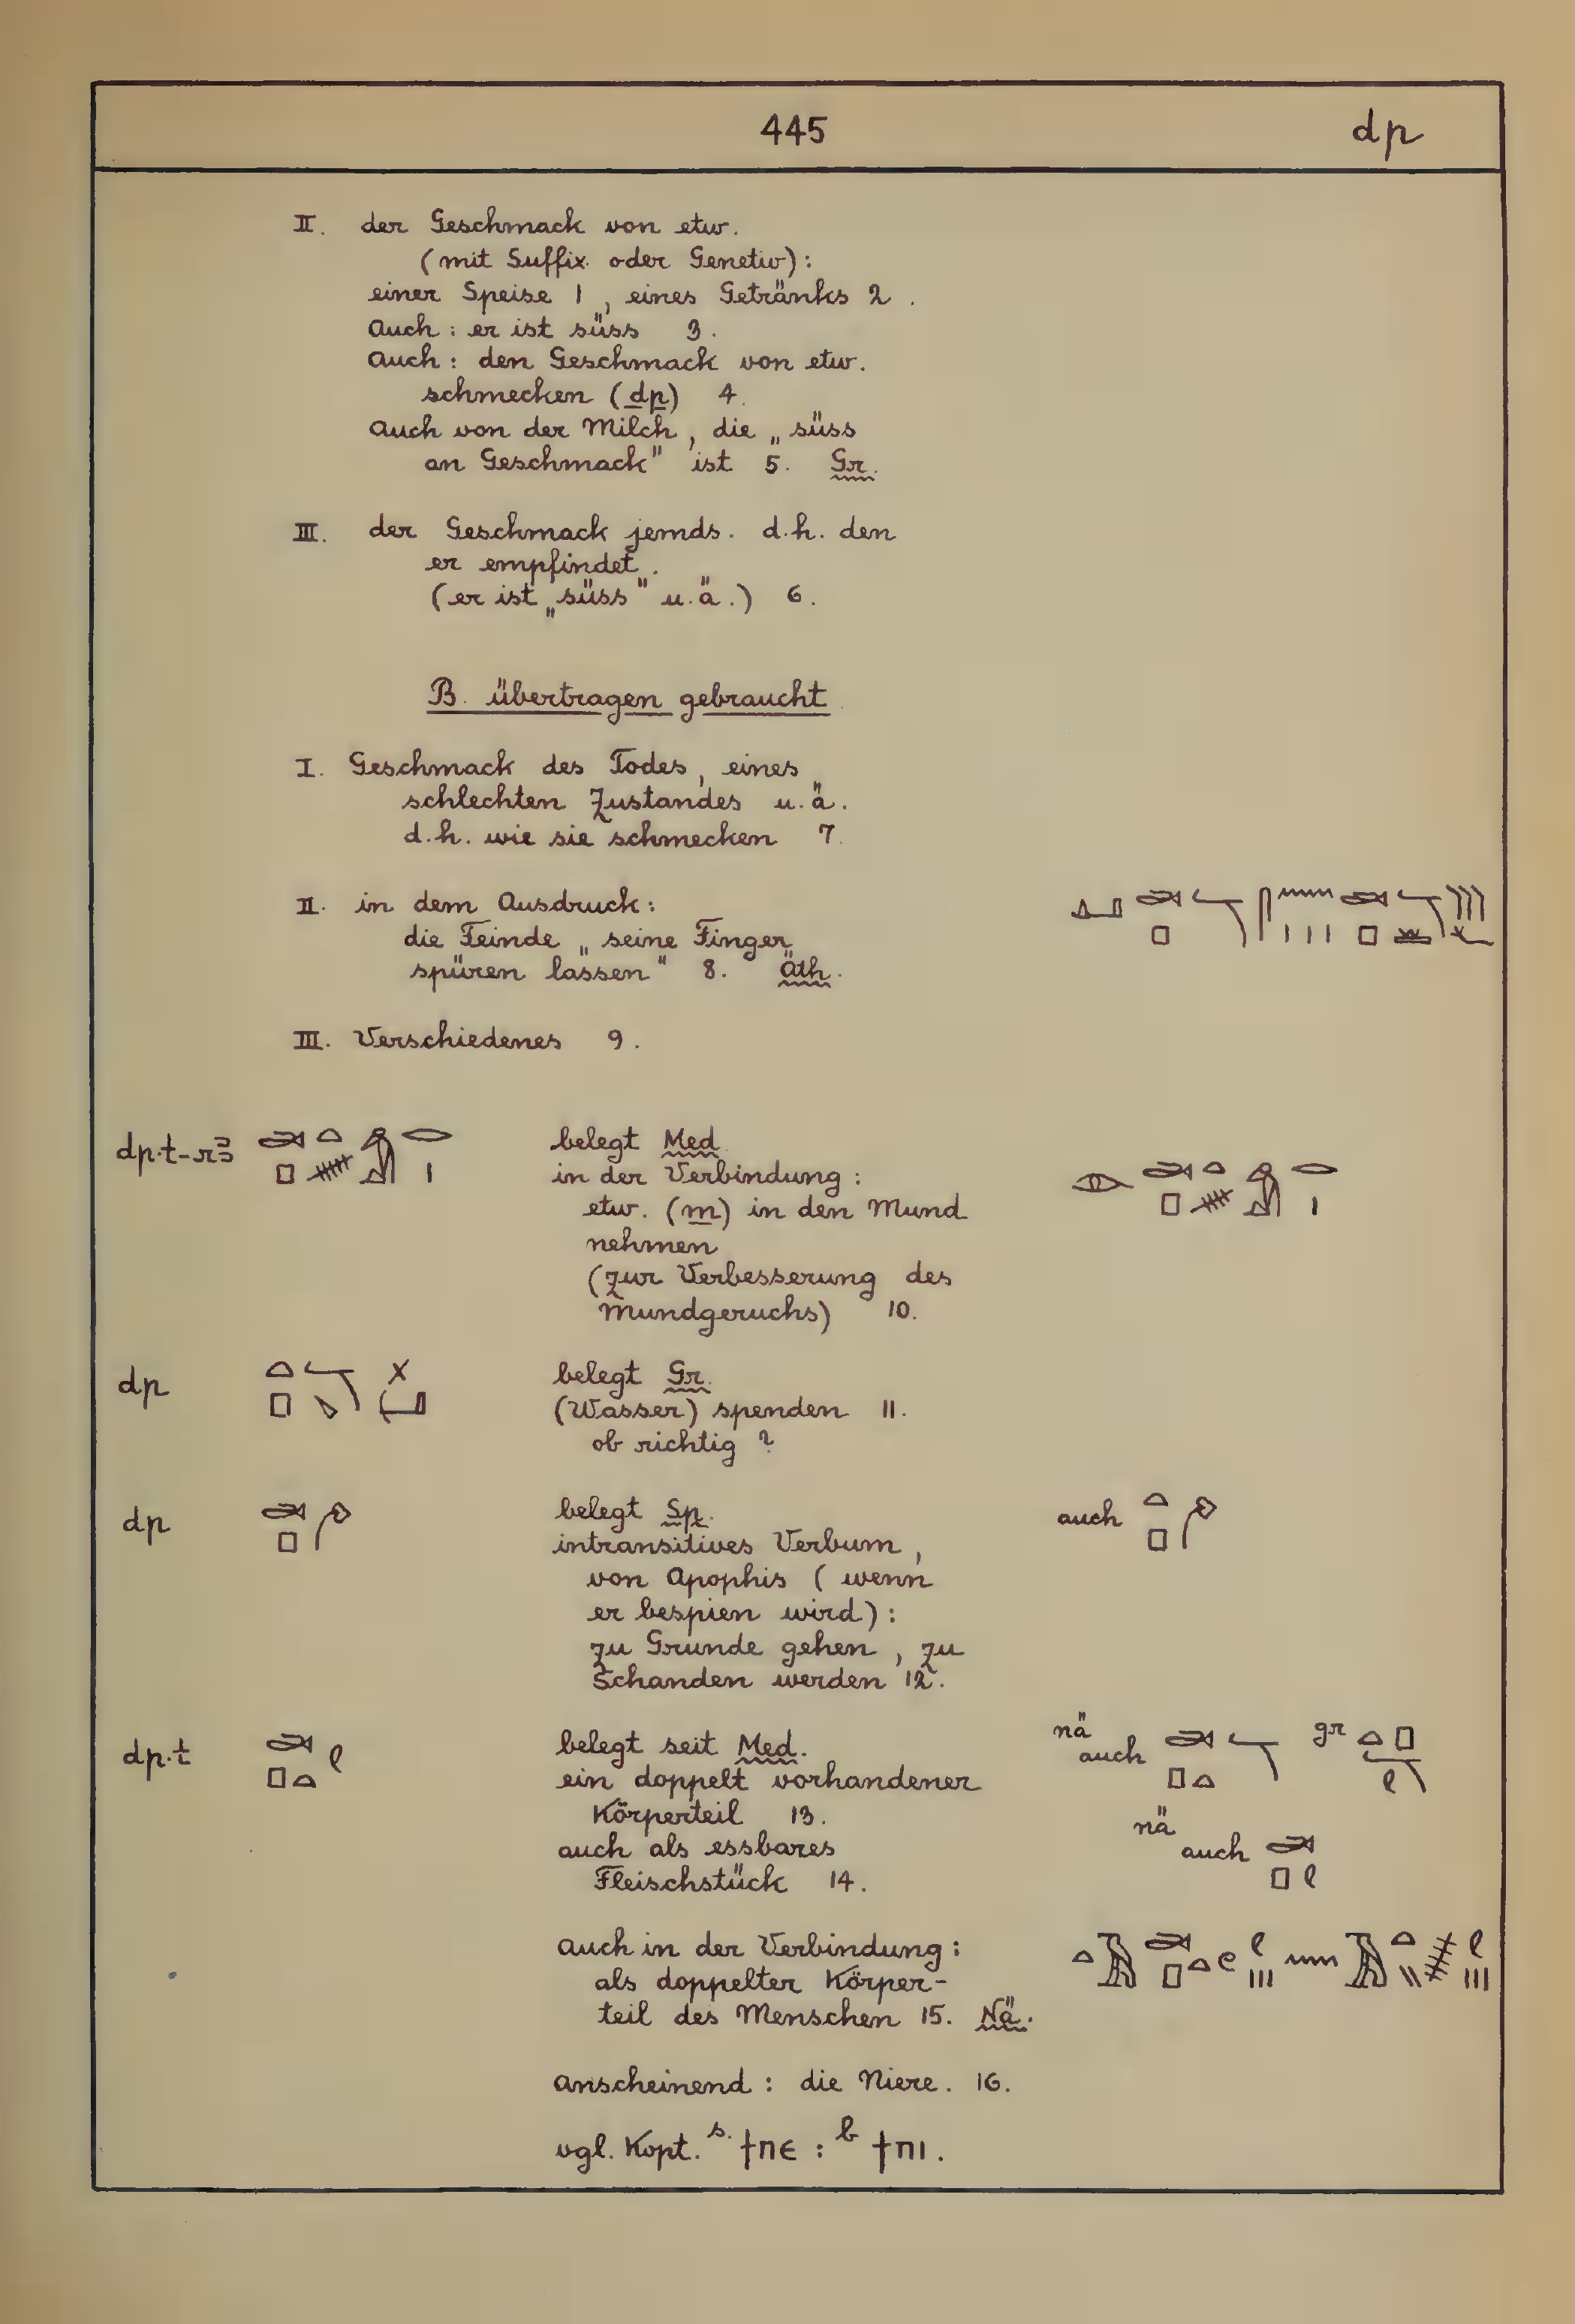 445 dp
II. der Geschmack von etw.
(mit Suffix oder Genetiv):
einer Speise 1, eines Getränks 2.
Auch: er ist süss 3.
Auch: den Geschmack von etw.
schmecken (dp) 4.
Auch von der Milch, die „süss
an Geschmack" ist 5. Gr.
III. der Geschmack jemds. d.h. den
er empfindet.
(er ist „süss" u.ä.) 6.
B. übertragen gebraucht
I. Geschmack des Todes, eines
schlechten Zustandes u.ä.
d.h. wie sie schmecken 7.
II. in dem Ausdruck:
die Feinde „seine Finger
spüren lassen" 8. Äth.
III. Verschiedenes 9.
dp·t-rꜣ belegt Med.
in der Verbindung:
etw. (m) in den Mund
nehmen
(zur Verbesserung des
Mundgeruchs) 10.
dp belegt Gr.
(Wasser) spenden 11.
ob richtig?
dp belegt Sp. auch
intransitives Verbum,
von Apophis (wenn
er bespien wird):
zu Grunde gehen, zu
Schanden werden 12.
dp·t belegt seit Med. nä auch gr
ein doppelt vorhandener
Körperteil 13.
auch als essbares nä auch
Fleischstück 14.
auch in der Verbindung:
als doppelter Körper-
teil des Menschen 15. Nä.
anscheinend: die Niere. 16.
vgl. Kopt. s. ϯπε : b ϯπι.